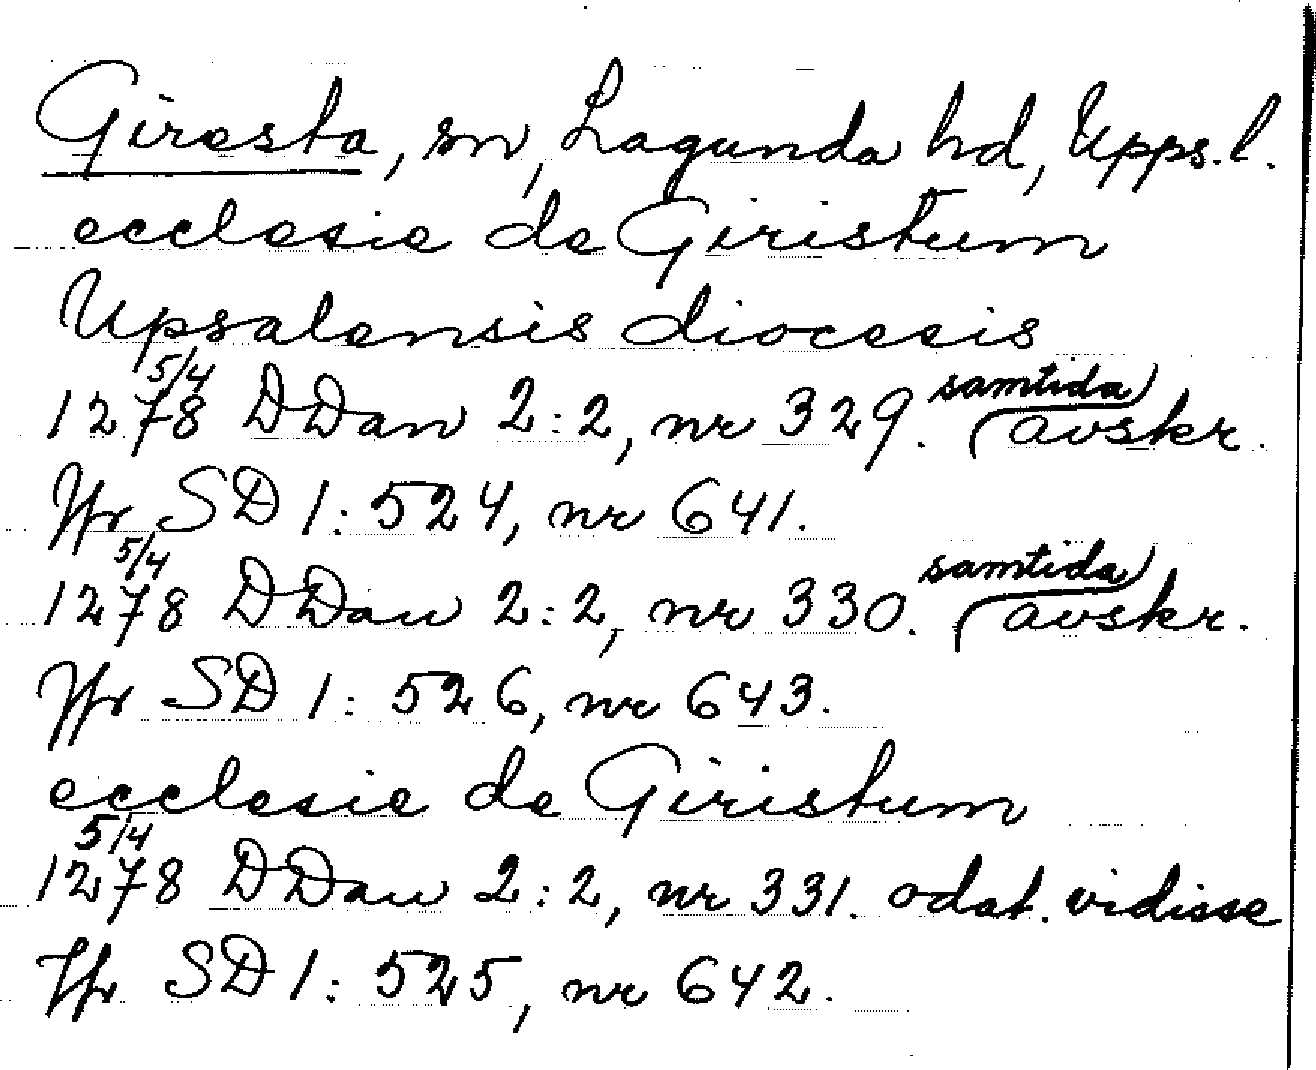 Giresta, sn, Lagunda hd, Upps. l.
ecclesie de Giristum
Upsalensis diocesis
1278 5/4 DDan 2:2, nr 329. (samtida) avskr.
Jfr SD 1: 524, nr 641.
1278 5/4 DDan 2:2, nr 330. (samtida) avskr.
Jfr SD 1: 526, nr 643.
ecclesie de Giristum
1278 5/4 DDan 2:2, nr 331. odat. vidisse
Jfr SD 1: 525, nr 642.